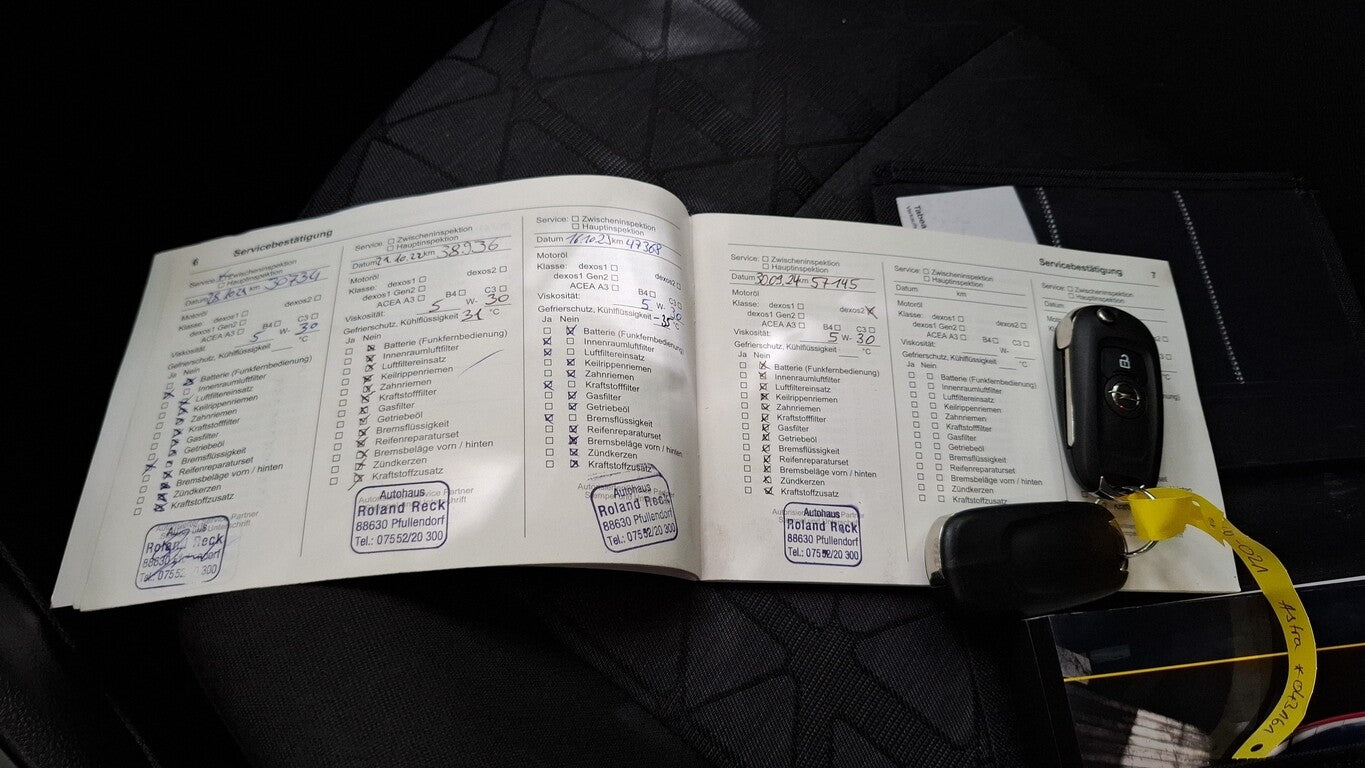 6
Servicebestätigung
Service: Zwischeninspektion
Hauptinspektion
Datum km 30734
Motoröl
Klasse: dexos1 dexos2
dexos1 Gen2
ACEA A3 B4 C3
Viskosität: 5 W- 30
Gefrierschutz, Kühlflüssigkeit °C
Ja Nein
Batterie (Funkfernbedienung)
Innenraumluftfilter
Luftfiltereinsatz
Keilrippenriemen
Zahnriemen
Kraftstofffilter
Gasfilter
Getriebeöl
Bremsflüssigkeit
Reifenreparaturset
Bremsbeläge vorn / hinten
Zündkerzen
Kraftstoffzusatz
Roland Reck
Tel.: 07552/20 300
Service: Zwischeninspektion
Hauptinspektion
Datum 21.10.22 km 38936
Motoröl
Klasse: dexos1 dexos2
dexos1 Gen2
ACEA A3 B4 C3
Viskosität: 5 W- 30
Gefrierschutz, Kühlflüssigkeit 31 °C
Ja Nein
Batterie (Funkfernbedienung)
Innenraumluftfilter
Luftfiltereinsatz
Keilrippenriemen
Zahnriemen
Kraftstofffilter
Gasfilter
Getriebeöl
Bremsflüssigkeit
Reifenreparaturset
Bremsbeläge vorn / hinten
Zündkerzen
Kraftstoffzusatz
Autohaus
Roland Reck
88630 Pfullendorf
Tel.: 07552/20 300
Service: Zwischeninspektion
Hauptinspektion
Datum 16.10.23 km 47368
Motoröl
Klasse: dexos1 dexos2
dexos1 Gen2
ACEA A3 B4 C3
Viskosität: 5 W- 30
Gefrierschutz, Kühlflüssigkeit -35 °C
Ja Nein
Batterie (Funkfernbedienung)
Innenraumluftfilter
Luftfiltereinsatz
Keilrippenriemen
Zahnriemen
Kraftstofffilter
Gasfilter
Getriebeöl
Bremsflüssigkeit
Reifenreparaturset
Bremsbeläge vorn / hinten
Zündkerzen
Kraftstoffzusatz
Autohaus
Roland Reck
88630 Pfullendorf
Tel.: 07552/20 300
Servicebestätigung
7
Service: Zwischeninspektion
Hauptinspektion
Datum 30.09.24 km 57145
Motoröl
Klasse: dexos1 dexos2
dexos1 Gen2
ACEA A3 B4 C3
Viskosität: 5 W- 30
Gefrierschutz, Kühlflüssigkeit °C
Ja Nein
Batterie (Funkfernbedienung)
Innenraumluftfilter
Luftfiltereinsatz
Keilrippenriemen
Zahnriemen
Kraftstofffilter
Gasfilter
Getriebeöl
Bremsflüssigkeit
Reifenreparaturset
Bremsbeläge vorn / hinten
Zündkerzen
Kraftstoffzusatz
Autohaus
Roland Reck
88630 Pfullendorf
Tel.: 07552/20 300
Service: Zwischeninspektion
Hauptinspektion
Datum km
Motoröl
Klasse: dexos1 dexos2
dexos1 Gen2
ACEA A3 B4 C3
Viskosität: W-
Gefrierschutz, Kühlflüssigkeit °C
Ja Nein
Batterie (Funkfernbedienung)
Innenraumluftfilter
Luftfiltereinsatz
Keilrippenriemen
Zahnriemen
Kraftstofffilter
Gasfilter
Getriebeöl
Bremsflüssigkeit
Reifenreparaturset
Bremsbeläge vorn / hinten
Zündkerzen
Service: Zwischeninspektion
Hauptinspektion
Datum
Motoröl
Astra *043161